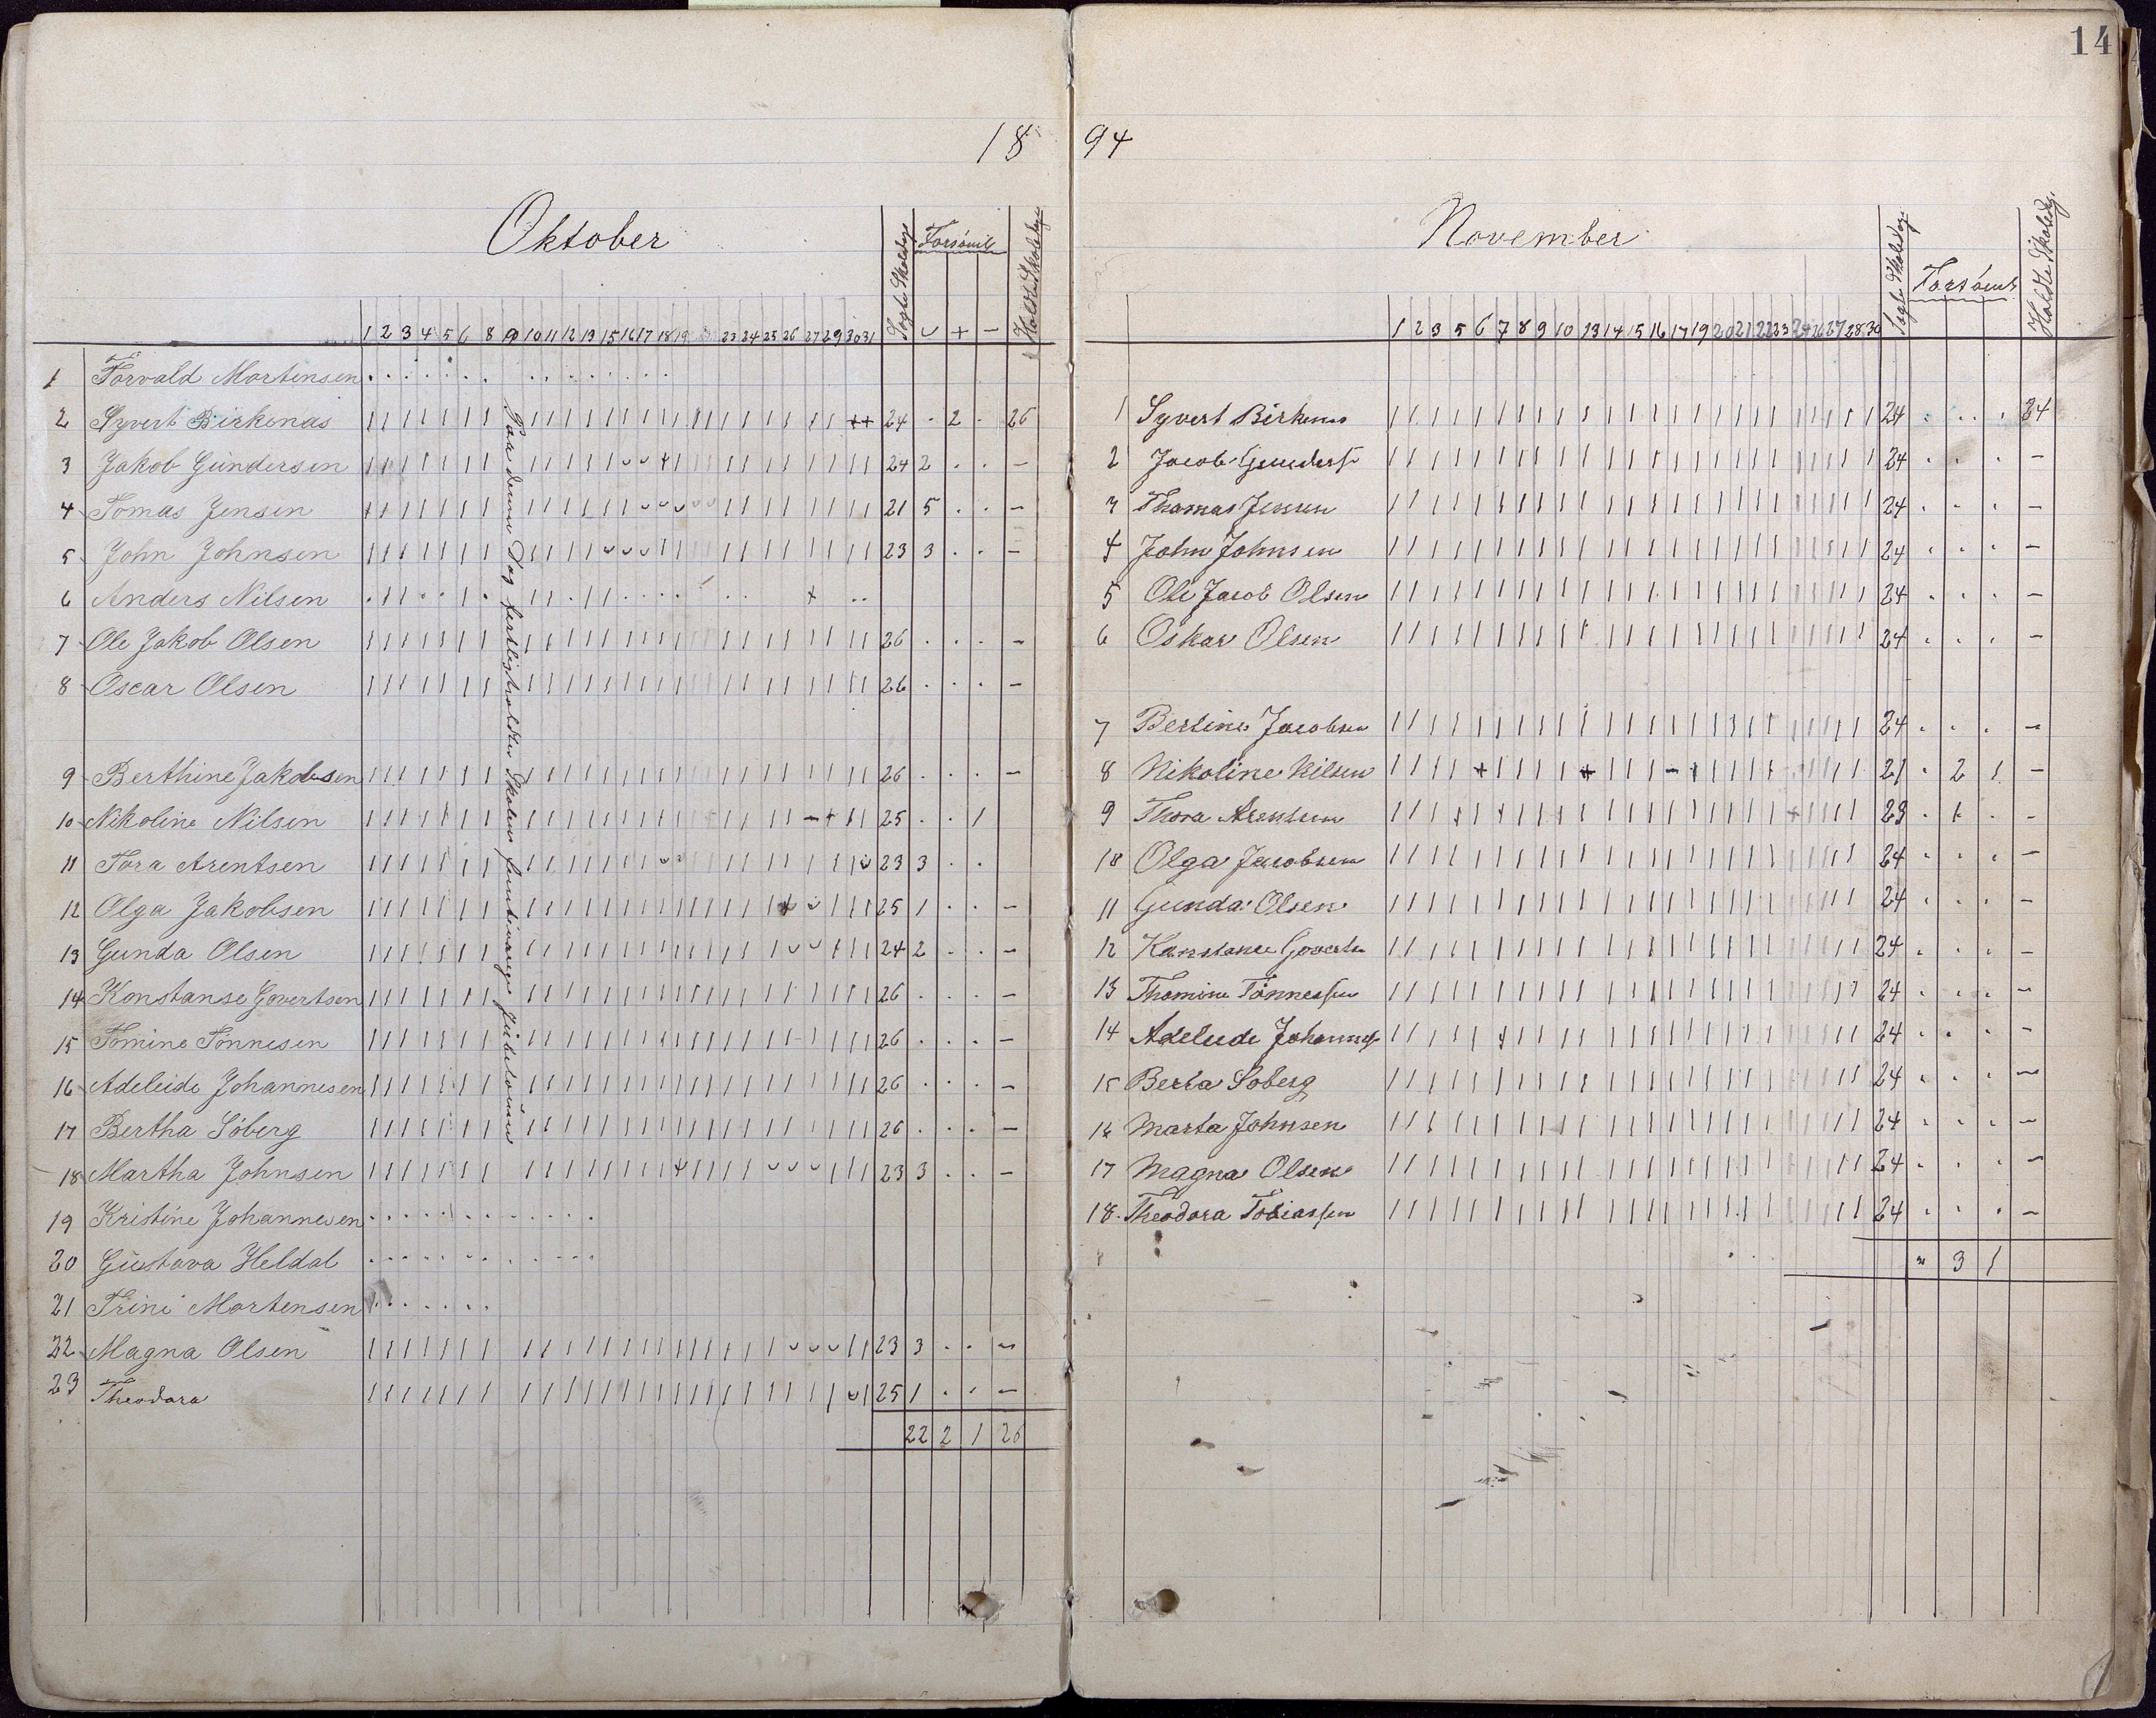 14
18 94
Oktober
Søgte Skoledage Forsømte Holdte Skoledage
1 2 3 4 5 6 8 9 10 11 12 13 15 16 17 18 19 23 24 25 26 27 29 30 31 ᴗ + −
1 Torvald Mortensen . . . . . . . . . . . . . . .
2 Syvert Birkenas 24 . 2 . 26
3 Jakob Gundersen 24 2 . . −
4 Tomas Jensen 21 5 . . −
5 John Johnsen 23 3 . . −
6 Anders Nilsen
7 Ole Jakob Olsen 26 . . . −
8 Oscar Olsen 26 . . . −
9 Berthine Jakobsen 26 . . . −
10 Nikoline Nilsen 25 . . 1
11 Tora Arentsen 23 3 . .
12 Olga Jakobsen 25 1 . . −
13 Gunda Olsen 24 2 . . −
14 Konstanse Govertsen 26 . . . −
15 Tomine Tønnesen 26 . . . −
16 Adeleide Johannesen 26 . . . −
17 Bertha Söberg 26 . . . −
18 Martha Johnsen 23 3 . . −
19 Kristine Johannesen
20 Gustava Heldal
21 Trine Mortensen
22 Magna Olsen 23 3 . . −
23 Theodora 25 1 . . −
22 2 1 26
Paa denne Dag Skolens
November
Søgte Skoledage Forsømt Holdte Skoledage
1 2 3 5 6 7 8 9 10 13 14 15 16 17 19 20 21 22 23 24 26 27 28 30
1 Syvert Birkenes 24 . . . 24
2 Jacob Gunders. 24 . . . −
3 Thomas Jensen 24 . . . −
4 John Johnsen 24 . . . −
5 Ole Jacob Olsen 24 . . . −
6 Oskar Olsen 24 . . . −
7 Bertine Jacobsen 24 . . . −
8 Nikoline Nilsen 21 . 2 1 −
9 Thora Arentsen 23 . 1 . −
10 Olga Jacobsen 24 . . . −
11 Gunda Olsen 24 . . . −
12 Konstance Goverts. 24 . . . −
13 Thomine Tönnessen 24 . . . −
14 Adeleide Johannes. 24 . . . −
15 Berta Soberg 24 . . . −
16 Marta Johnsen 24 . . . −
17 Magna Olsen 24 . . . −
18. Theodora Tobiassen 24 . . . −
" 3 1